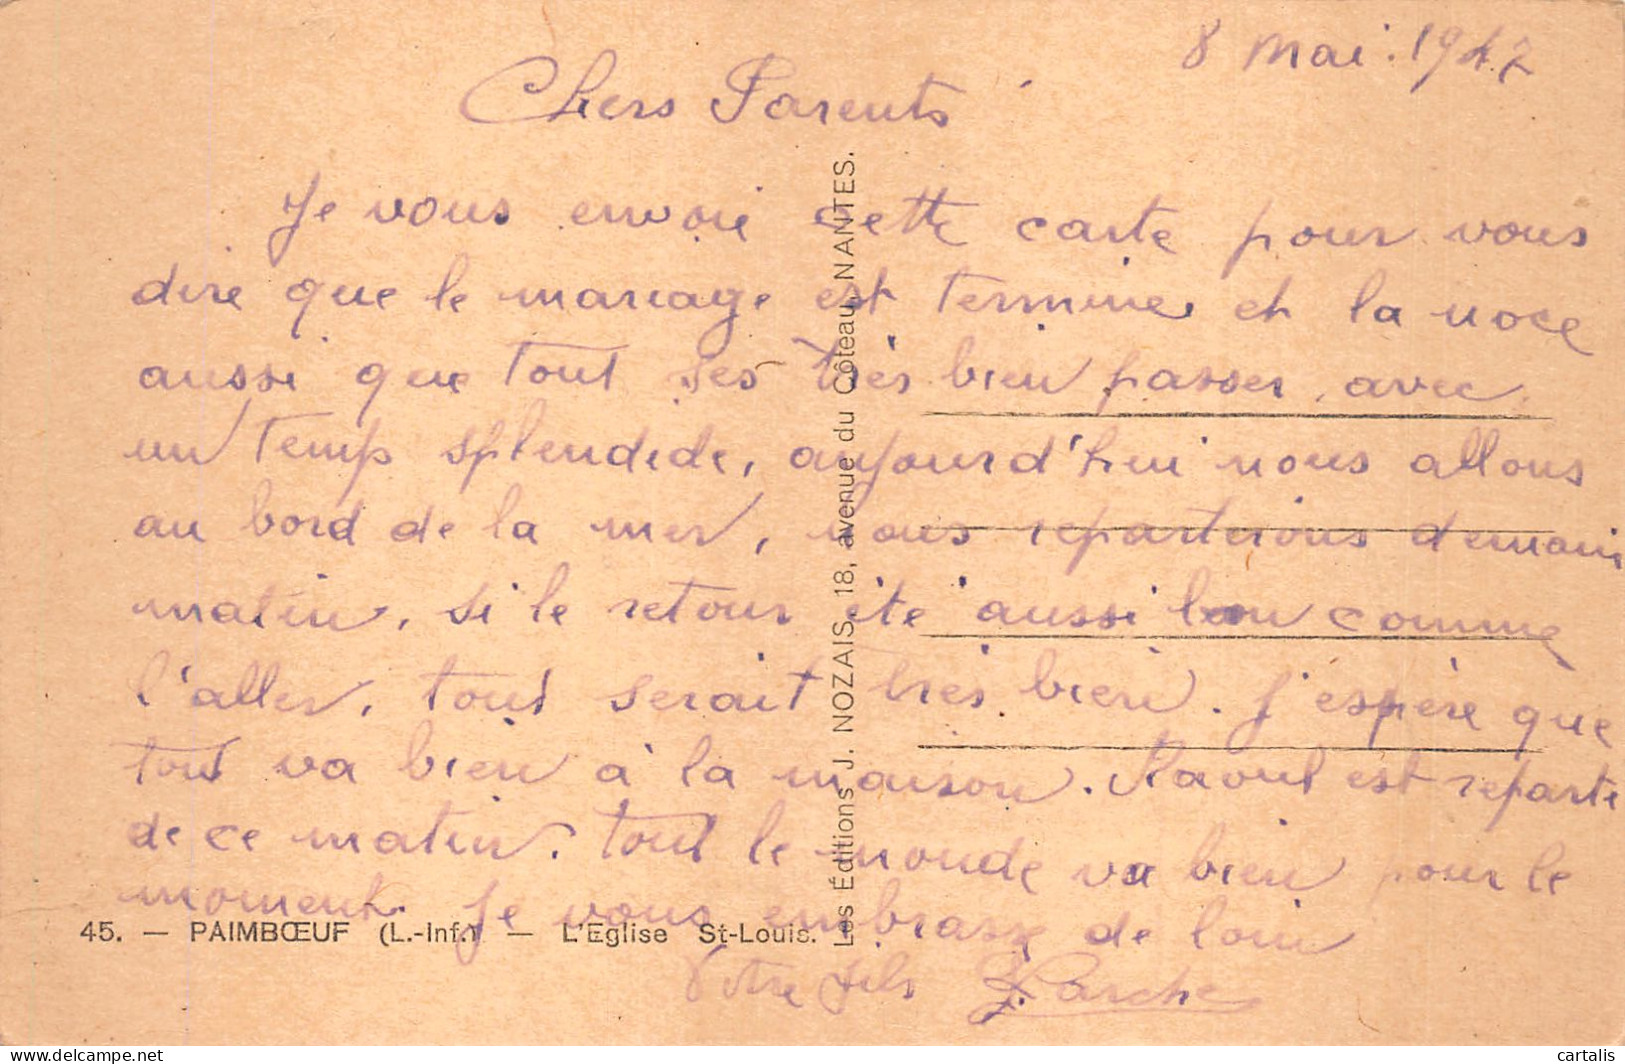 8 mai 1947
Chers Parents
Je vous envoie cette carte pour vous
dire que le mariage est terminé et la noce
aussi que tout ses très bien passer, avec
un temp splendide, aujourd'hui nous allons
au bord de la mer, nous reparterons demain
matin, si le retour été aussi bon comme
l'aller, tout serait très bien. J'espère que
tout va bien à la maison. Raoul est reparte
de ce matin. tout le monde va bien pour le
moment. Je vous embrasse de loin
Votre fils
45. — PAIMBŒUF (L.-Inf.) — L'Eglise St-Louis.
Les Éditions J. NOZAIS, 18, avenue du Côteau, NANTES.
cartalis
delcampe.net